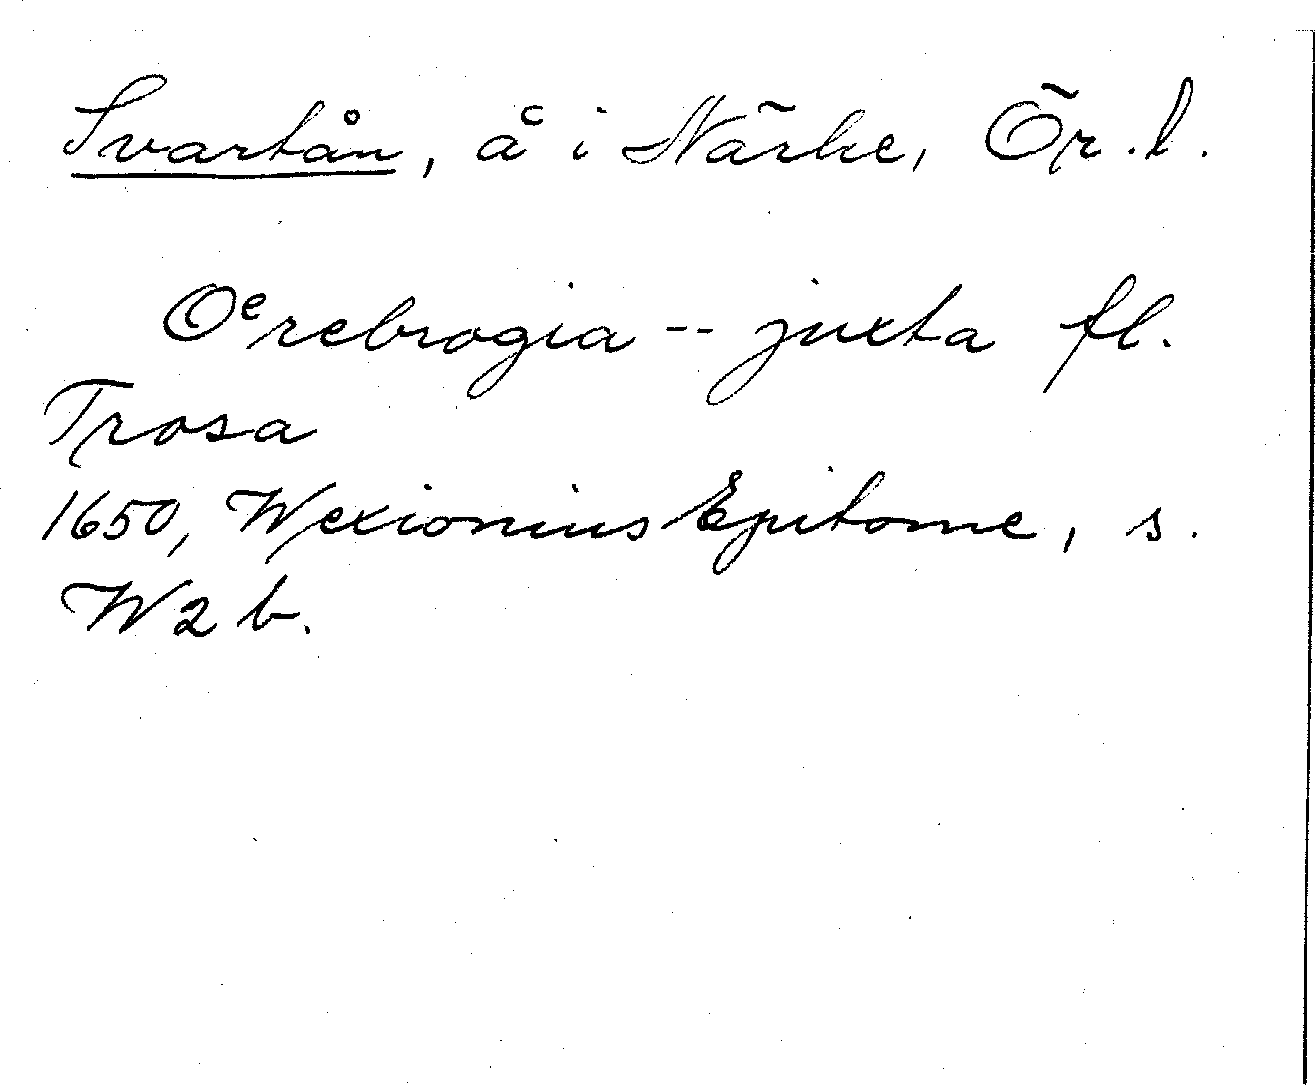 Svartån, å i Närke, Ör.l.
Oͤrebrogia -- juxta fl.
Trosa
1650, Wexionius Epitome, s.
W2b.